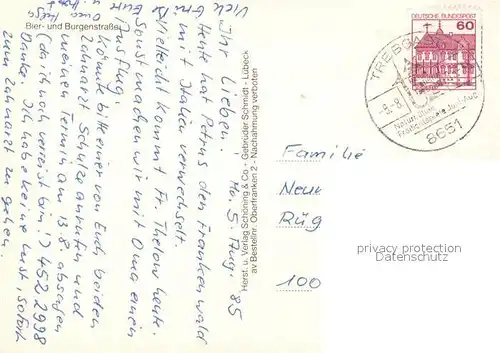 Bier- und Burgenstraße
Mo. 5. Aug. 85
Ihr Lieben!
Heute hat Petrus den Frankenwald
mit Italien verwechselt.
Vielleicht kommt Fr. Thelow heute.
Sonst machen wir mit Oma einen
Ausflug.
Könnte bitte einer von Euch beiden
Zahnarzt Schulze anrufen und
meinen Termin am 13.8 absagen
(da ich noch verreist bin!) 452 2998
Danke. Ich habe keine Lust, sofort
zum Zahnarzt zu gehen.
Viele
Eure
u. Oma
Herst. u. Verlag Schöning & Co - Gebrüder Schmidt - Lübeck
av Bestellnr. Oberfranken 2 - Nachahmung verboten
DEUTSCHE BUNDESPOST
60
TREBGAST
-5.-8.
Natur
8651
Familie
Neu
Rüg
100
privacy protection
Datenschutz